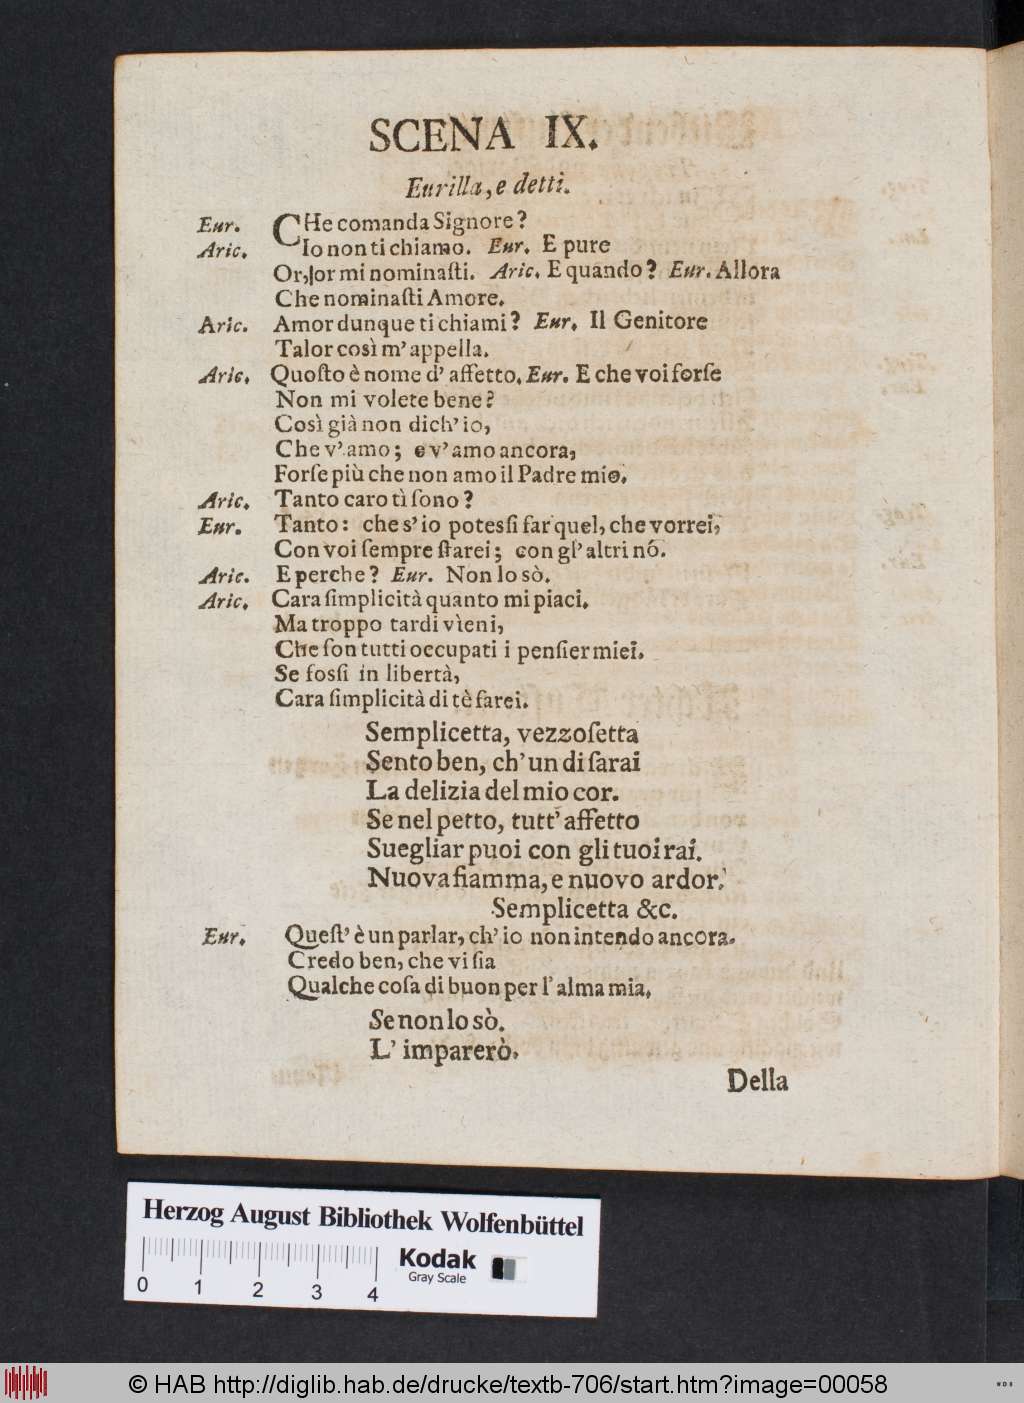 SCENA IX.
Eurilla, e detti.
Eur. CHe comanda Signore?
Aric. Io non ti chiamo. Eur. E pure
Or, ſor mi nominaſti. Aric. E quando? Eur. Allora
Che nominaſti Amore.
Aric. Amor dunque ti chiami? Eur. Il Genitore
Talor così m' appella.
Aric. Quoſto è nome d' affetto. Eur. E che voi forſe
Non mi volete bene?
Così già non dich' io,
Che v' amo; e v' amo ancora,
Forſe più che non amo il Padre mio.
Aric. Tanto caro tì ſono?
Eur. Tanto: che s' io potesſi far quel, che vorrei,
Con voi ſempre ſtarei; con gl' altri nó.
Aric. E perche? Eur. Non lo sò.
Aric. Cara ſimplicità quanto mi piaci.
Ma troppo tardi vìeni,
Che ſon tutti occupati i penſier miei.
Se fosſi in libertà,
Cara ſimplicità di tè ſarei.
Semplicetta, vezzoſetta
Sento ben, ch' un di ſarai
La delizia del mio cor.
Se nel petto, tutt' affetto
Suegliar puoi con gli tuoi rai.
Nuova fiamma, e nuovo ardor.
Semplicetta &c.
Eur. Queſt' è un parlar, ch' io non intendo ancora.
Credo ben, che vi ſia
Qualche coſa di buon per l' alma mia.
Se non lo sò.
L' imparerò.
Della
Herzog August Bibliothek Wolfenbüttel
0 1 2 3 4
Kodak
Gray Scale
© HAB http://diglib.hab.de/drucke/textb-706/start.htm?image=00058